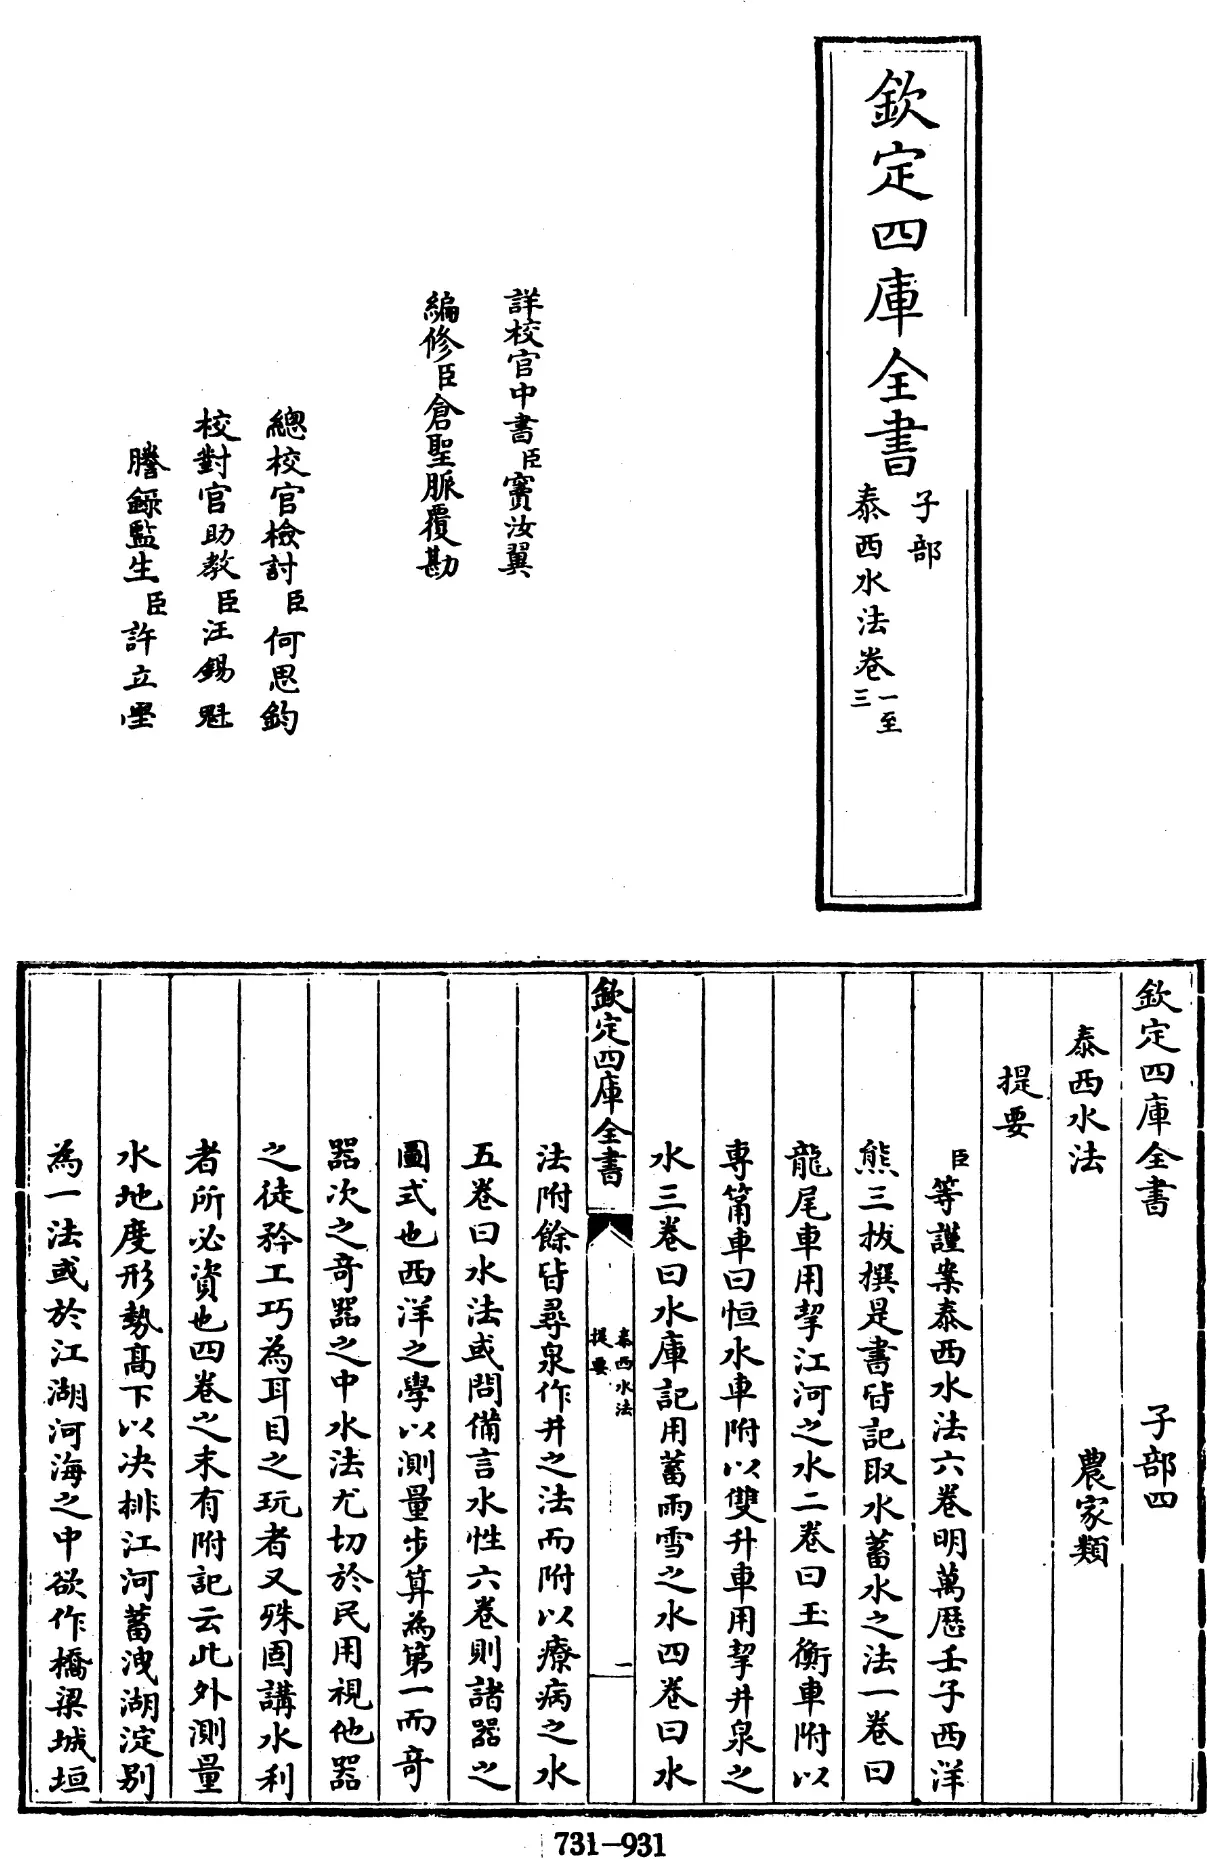 欽定四庫全書
子部
泰西水法卷一至三
詳校官中書臣竇汝翼
編修臣倉聖脈覆勘
總校官檢討臣何思鈞
校對官助教臣汪錫魁
謄錄監生臣許立堊
欽定四庫全書 子部四
泰西水法 農家類
提要
臣等謹案泰西水法六卷明萬歷壬子西洋
熊三拔撰是書皆記取水蓄水之法一卷曰
龍尾車用挈江河之水二卷曰玉衡車附以
專筩車曰恒水車附以雙升車用挈井泉之
水三卷曰水庫記用蓄雨雪之水四卷曰水
欽定四庫全書
泰西水法
提要
一
法附餘皆尋泉作井之法而附以療病之水
五卷曰水法或問備言水性六卷則諸器之
圖式也西洋之學以測量步算為第一而奇
器次之奇器之中水法尤切於民用視他器
之徒矜工巧為耳目之玩者又殊固講水利
者所必資也四卷之末有附記云此外測量
水地度形勢高下以决排江河蓄洩湖淀别
為一法或於江湖河海之中欲作橋梁城垣
731-931